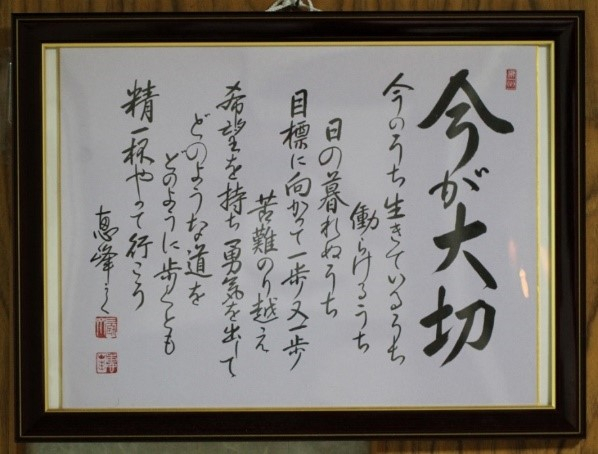 今が大切
今のうち生きているうち
働らけるうち
日の暮れぬうち
目標に向かって一歩又一歩
苦難のり越え
希望を持ち勇気を出して
どのような道を
どのように歩くとも
精一杯やって行こう
恵峰之